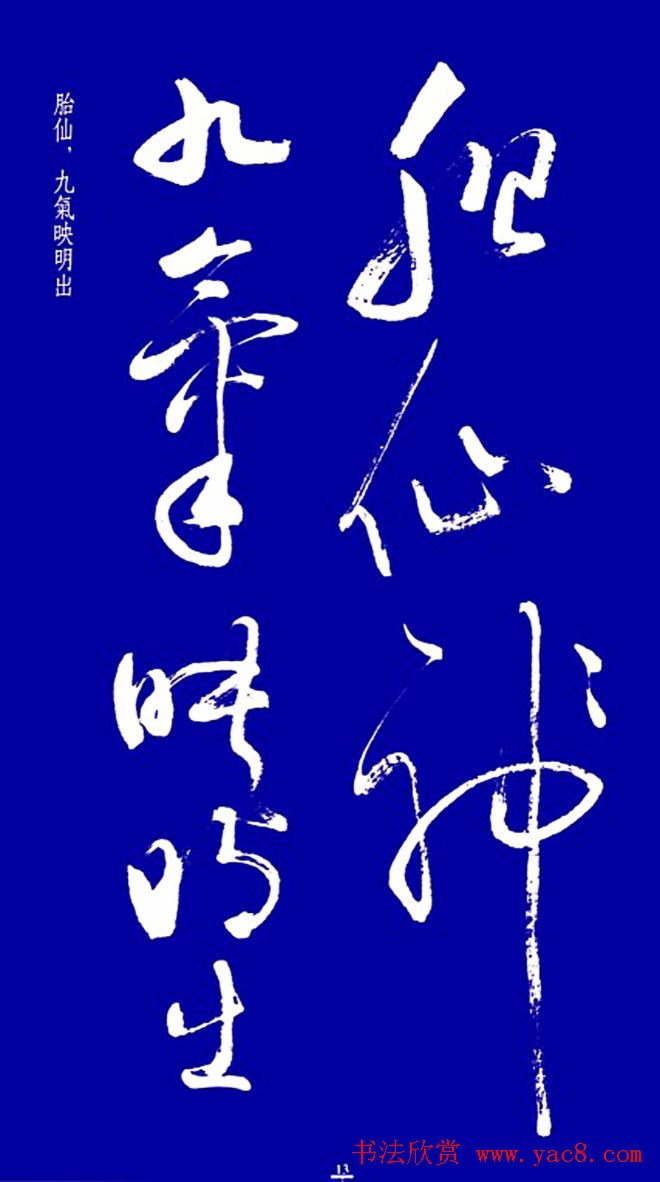 胎仙神
九氣映明出
胎仙,九氣映明出
13
书法欣赏 www.yac8.com